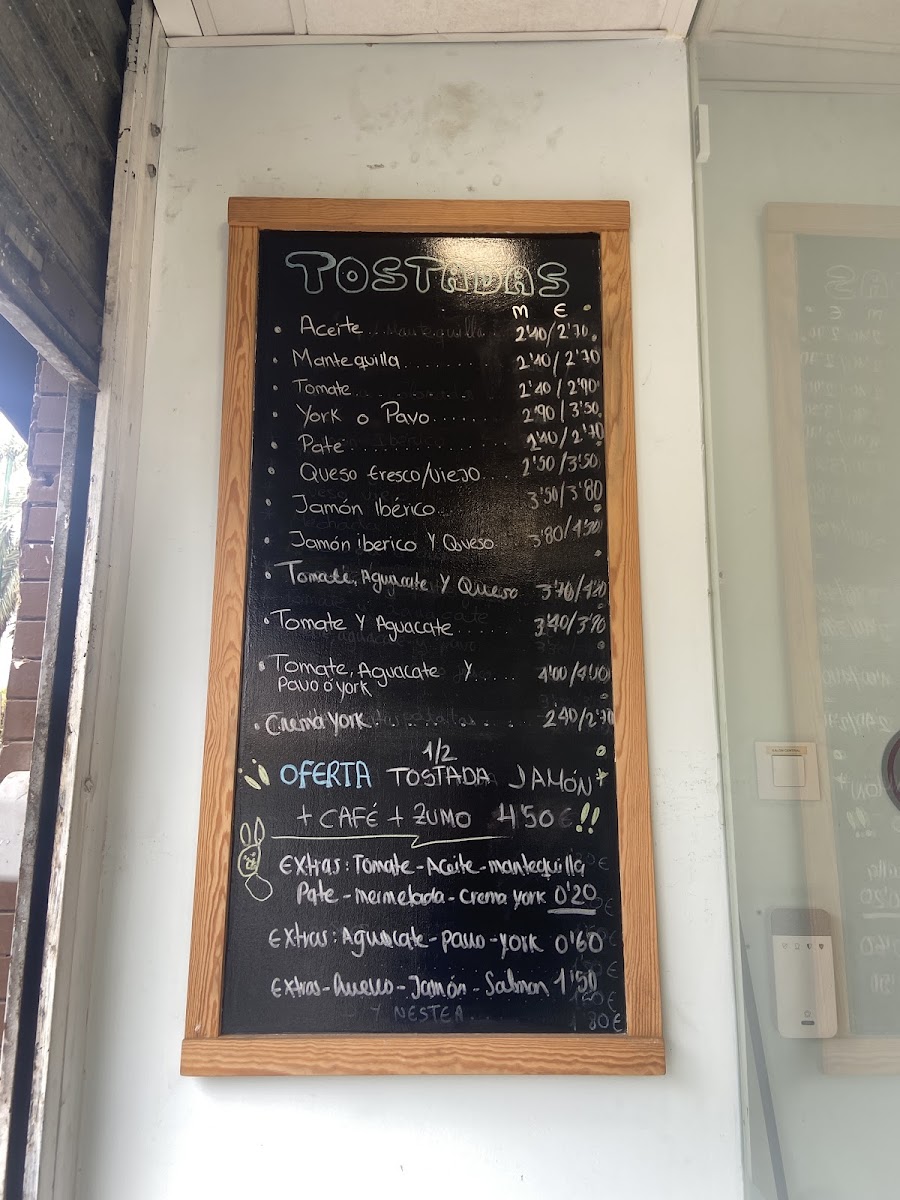 TOSTADAS
M E
Aceite 2'40/2'70
Mantequilla 2'40/2'70
Tomate 2'40/2'90
York o Pavo 2'90/3'50
Pate /2'70
Queso fresco/viejo 2'50/3'50
Jamón Ibérico 3'50/3'80
Jamón iberico Y Queso 3'80/4'20
Tomate, Aguacate Y Queso 3'70/4'20
Tomate Y Aguacate 3'40/3'90
Tomate, Aguacate Y 4'00/4'40
Pavo ó York
Crema York 2'40/2'70
1/2
OFERTA TOSTADA JAMÓN
+ CAFÉ + ZUMO 4'50€!!
Extras: Tomate - Aceite - mantequilla
Pate - mermelada - crema york 0'20
Extras: Aguacate - pavo - york 0'60
Extras - huevo - Jamón - Salmon 1'50
Y NESTEA 80€